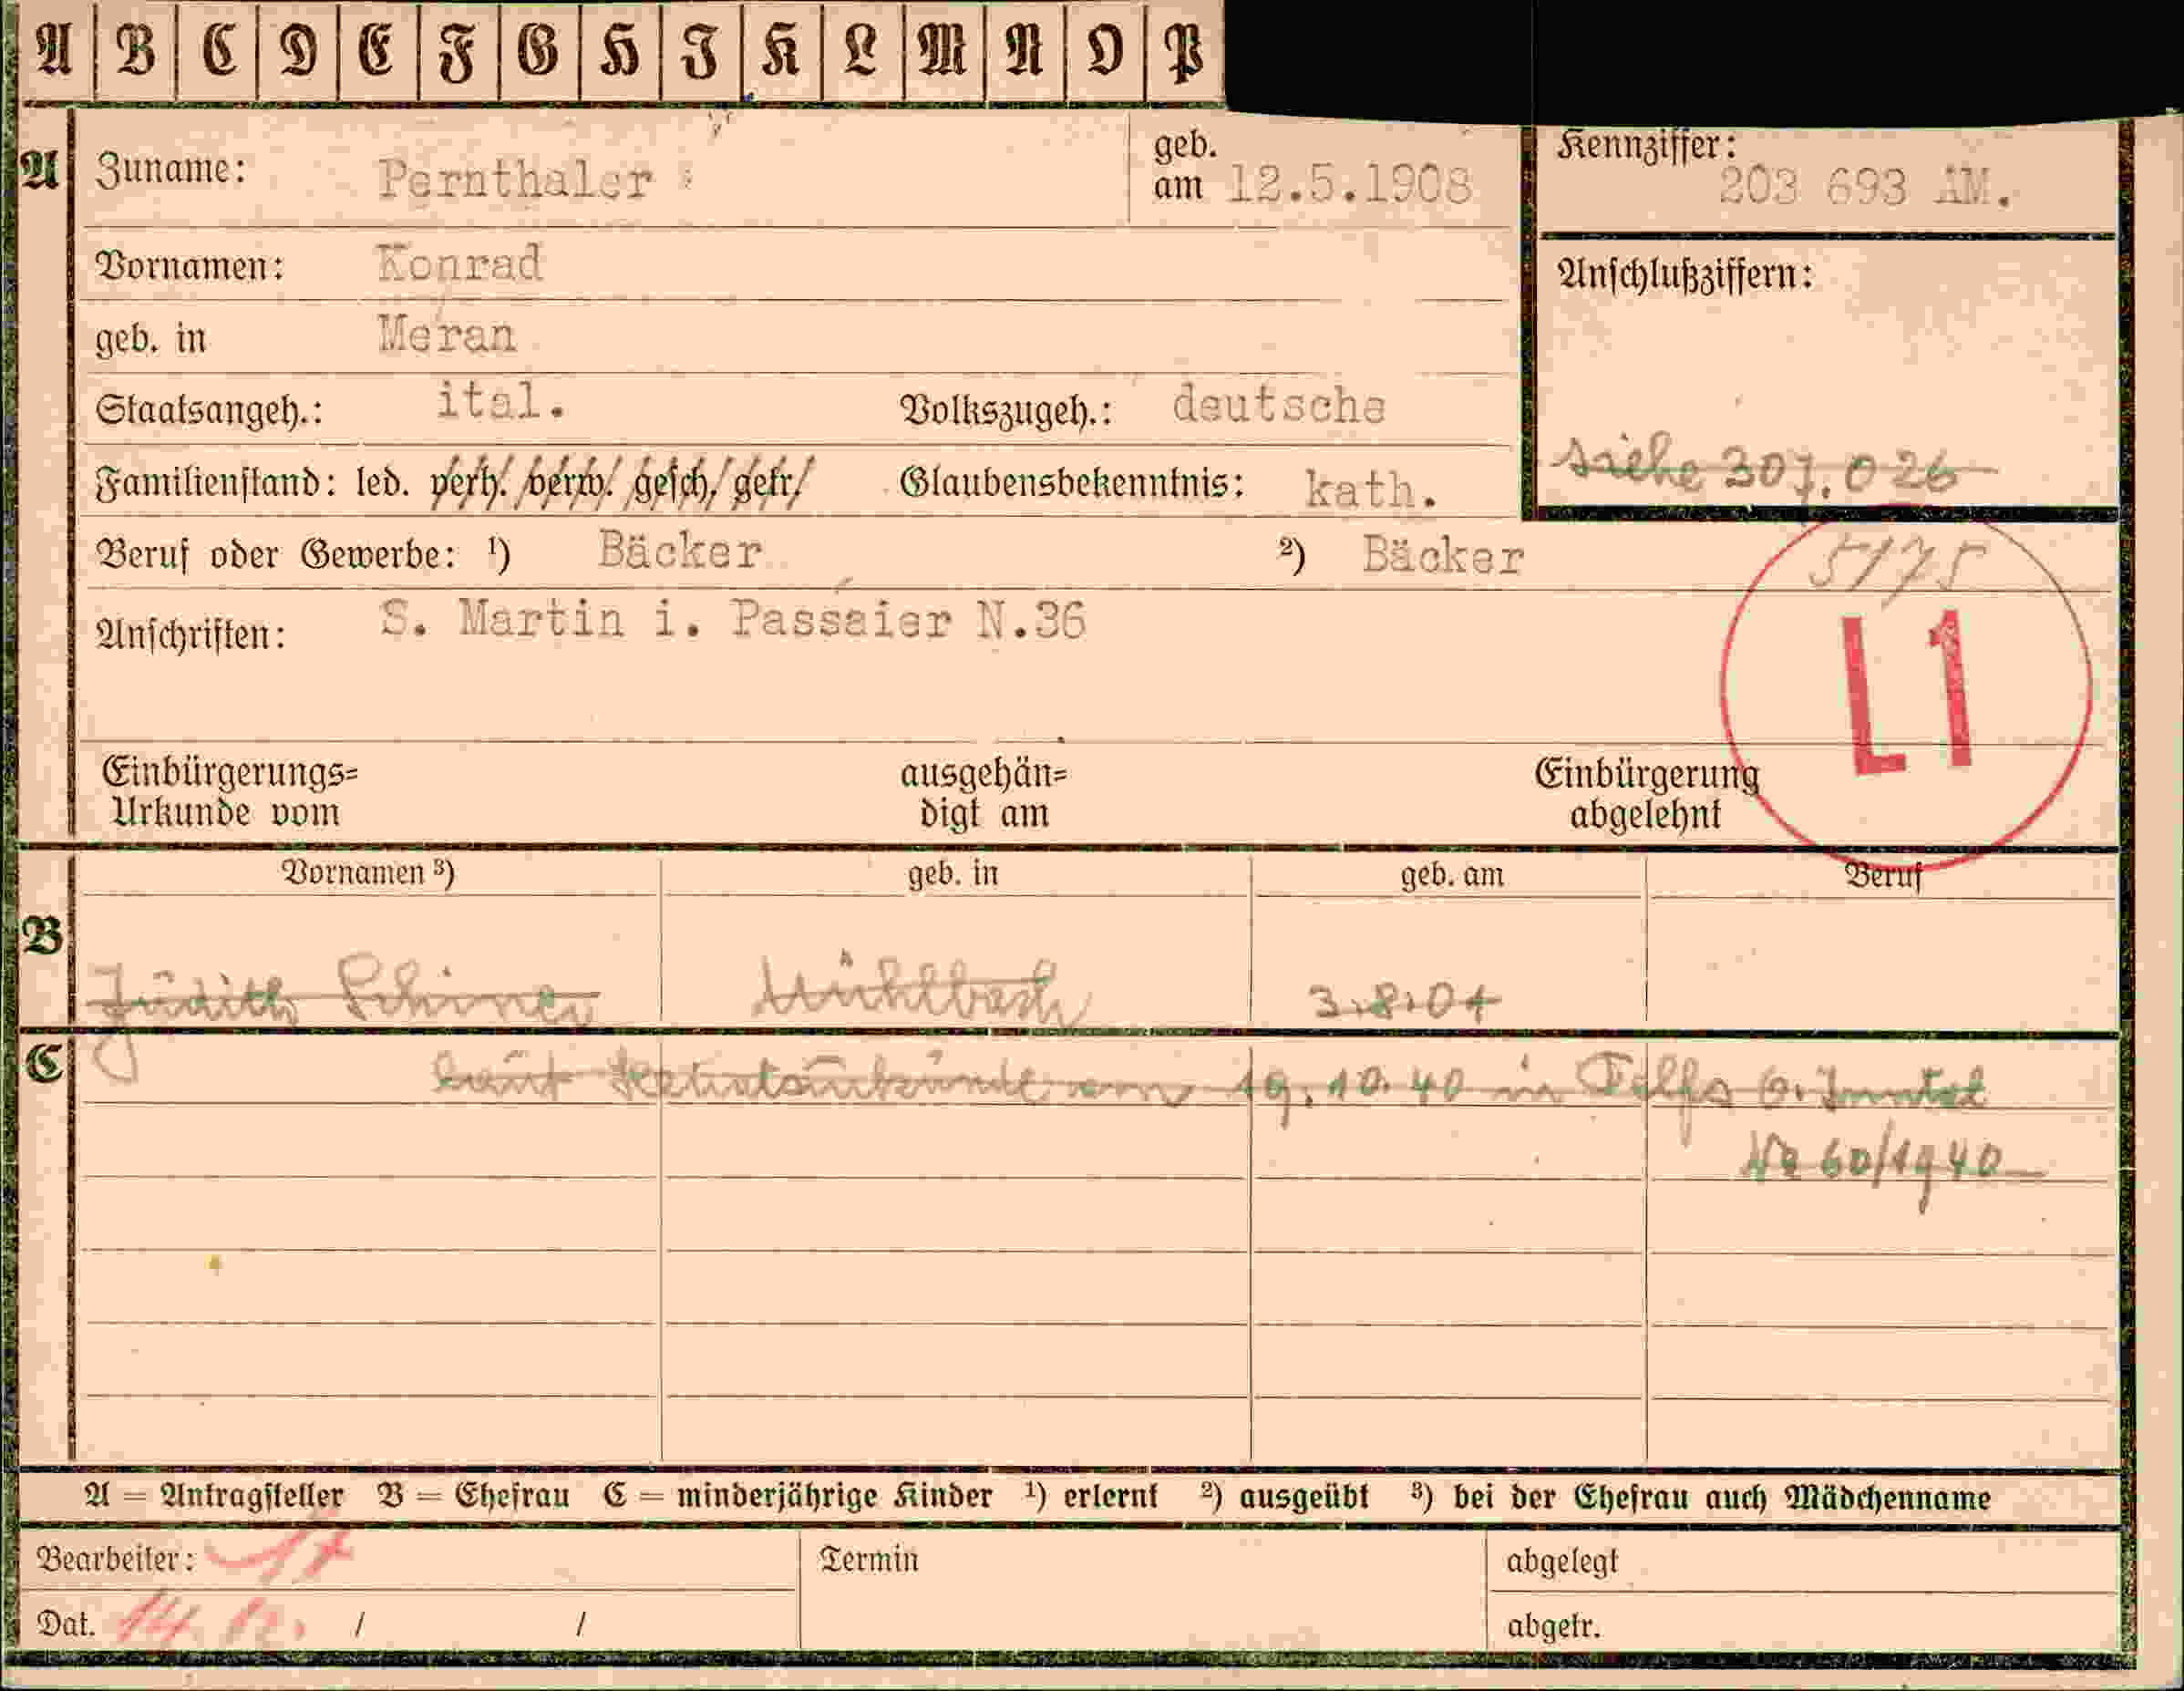 A B C D E F G H I K L M N O P
A Zuname: Pernthaler geb. am 12.5.1908 Kennziffer: 203 693 AM.
Vornamen: Konrad Anschlußziffern:
geb. in Meran
Staatsangeh.: ital. Volkszugeh.: deutsche
siehe 307.026
Familienstand: led. verh. verw. gesch. getr. Glaubensbekenntnis: kath.
Beruf oder Gewerbe: ¹) Bäcker ²) Bäcker 5175
Anschriften: S. Martin i. Passeier N.36
L1
Einbürgerungs= ausgehän= Einbürgerung
Urkunde vom digt am abgelehnt
Vornamen ³) geb. in geb. am Beruf
B
Judith Mühlbach 3.8.04
C laut Heiratsurkunde vom 19.10.40 in Telfs O. Inntal
No 60/1940
A = Antragsteller B = Ehefrau C = minderjährige Kinder ¹) erlernt ²) ausgeübt ³) bei der Ehefrau auch Mädchenname
Bearbeiter: Termin abgelegt
Dat. 14. 12. / / abgetr.